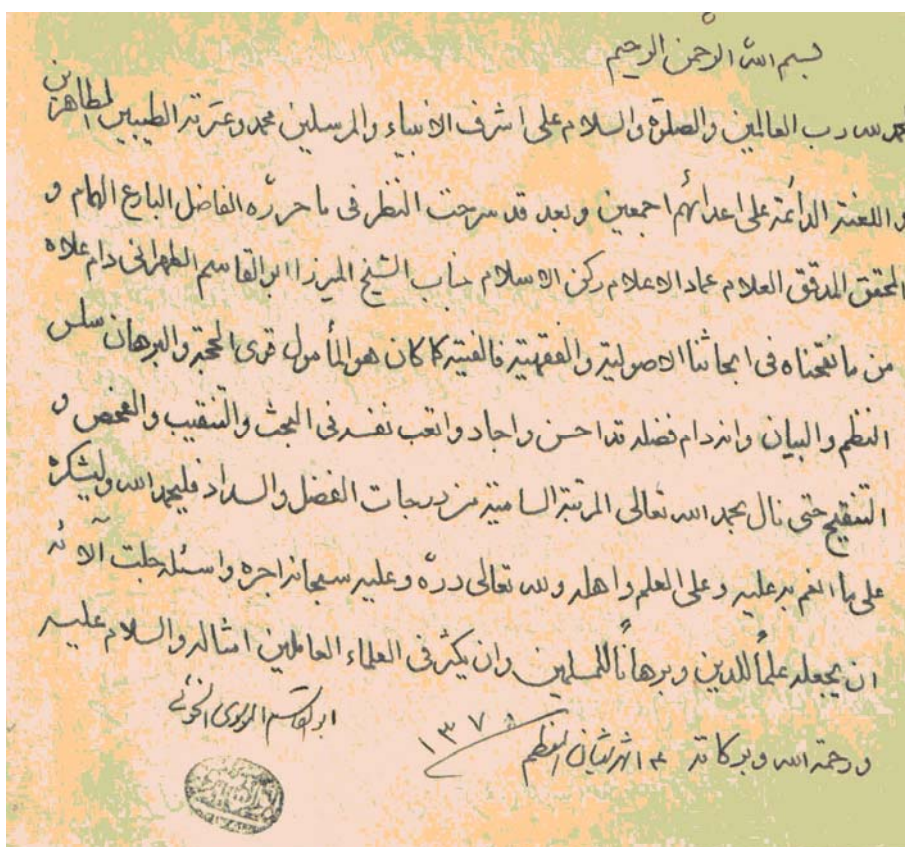 بسم الله الرحمن الرحيم
الحمد لله رب العالمين والصلوة والسلام على اشرف الانبياء والمرسلين محمد وعترته الطيبين الطاهرين
و اللعنة الدائمة على اعدائهم اجمعين وبعد قد سرحت النظر فى ما حرره الفاضل البارع الهمام و
المحقق المدقق العلام عماد الاعلام ركن الاسلام جناب الشيخ الميرزا ابو القاسم الطهرانى دام علاه
من ما نقحناه فى ابحاثنا الاصولية والفقهية فالفيته كما كان هو المأمول قوى الحجة والبرهان سلس
النظم والبيان وانه دام فضله قد احسن واجاد واتعب نفسه فى البحث والتنقيب والفحص و
التنقيح حتى نال بحمد الله تعالى المرتبة السامية من درجات الفضل والسداد فليحمد الله وليشكره
على ما انعم به عليه وعلى العلم واهله ولله تعالى درّه وعليه سبحانه اجره واسئله جلت آلائه
ان يجعله علماً للدين وبرهاناً للمسلمين وان يكثر فى العلماء العاملين امثاله والسلام عليه
ورحمة الله وبركاته شهر شعبان المعظم
ابو القاسم الموسوى الخوئى